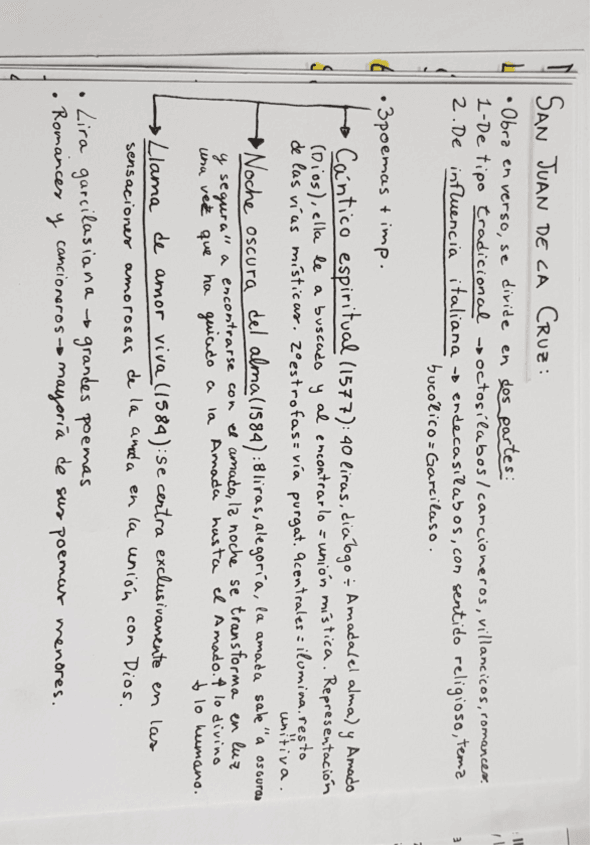 SAN JUAN DE LA CRUZ:
• Obra en verso, se divide en dos partes:
1-De tipo tradicional → octosílabos/cancioneros, villancicos, romances
2. De influencia italiana → endecasílabos, con sentido religioso, tema
bucólico = Garcilaso.
• 3 poemas + imp.
→ Cántico espiritual (1577): 40 liras, diálogo ÷ Amada (el alma) y Amado
(Dios), ella le a buscado y al encontrarlo = unión mística. Representación
de las vías místicas. 2º estrofas = vía purgat. 9 centrales = ilumina. resto
= unitiva.
→ Noche oscura del alma (1584): 8 liras, alegoría, la amada sale "a oscuras
y segura" a encontrarse con el amado, la noche se transforma en luz
una vez que ha guiado a la Amada hasta el Amado. ↑ lo divino
↓ lo humano.
→ Llama de amor viva (1584): se centra exclusivamente en las
sensaciones amorosas de la amda en la unión con Dios.
• Lira garcilasiana → grandes poemas
• Romances y cancioneros → mayoría de sus poemas menores.